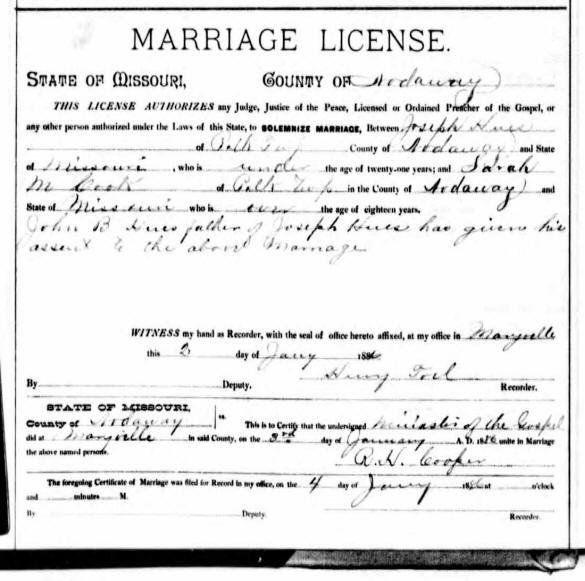 MARRIAGE LICENSE.
STATE OF MISSOURI, COUNTY OF Nodaway
THIS LICENSE AUTHORIZES any Judge, Justice of the Peace, Licensed or Ordained Preacher of the Gospel, or
any other person authorized under the Laws of this State, to SOLEMNIZE MARRIAGE, Between Joseph Hues
of Polk Twp County of Nodaway and State
of Missouri, who is under the age of twenty-one years; and Sarah
M Cook of Polk Twp in the County of Nodaway and
State of Missouri who is over the age of eighteen years.
John B Hues father of Joseph Hues has given his
assent to the above Marriage
WITNESS my hand as Recorder, with the seal of office hereto affixed, at my office in Maryville
this 2 day of Jany 1886
Henry Toel
By Deputy. Recorder.
STATE OF MISSOURI,
County of Nodaway ss. This is to Certify that the undersigned Minister of the Gospel
did at Maryville in said County, on the 3rd day of January A. D. 1886 unite in Marriage
the above named persons. R. H. Cooper
The foregoing Certificate of Marriage was filed for Record in my office, on the 4 day of Jany 1886 at o'clock
and minutes M.
By Deputy. Recorder.